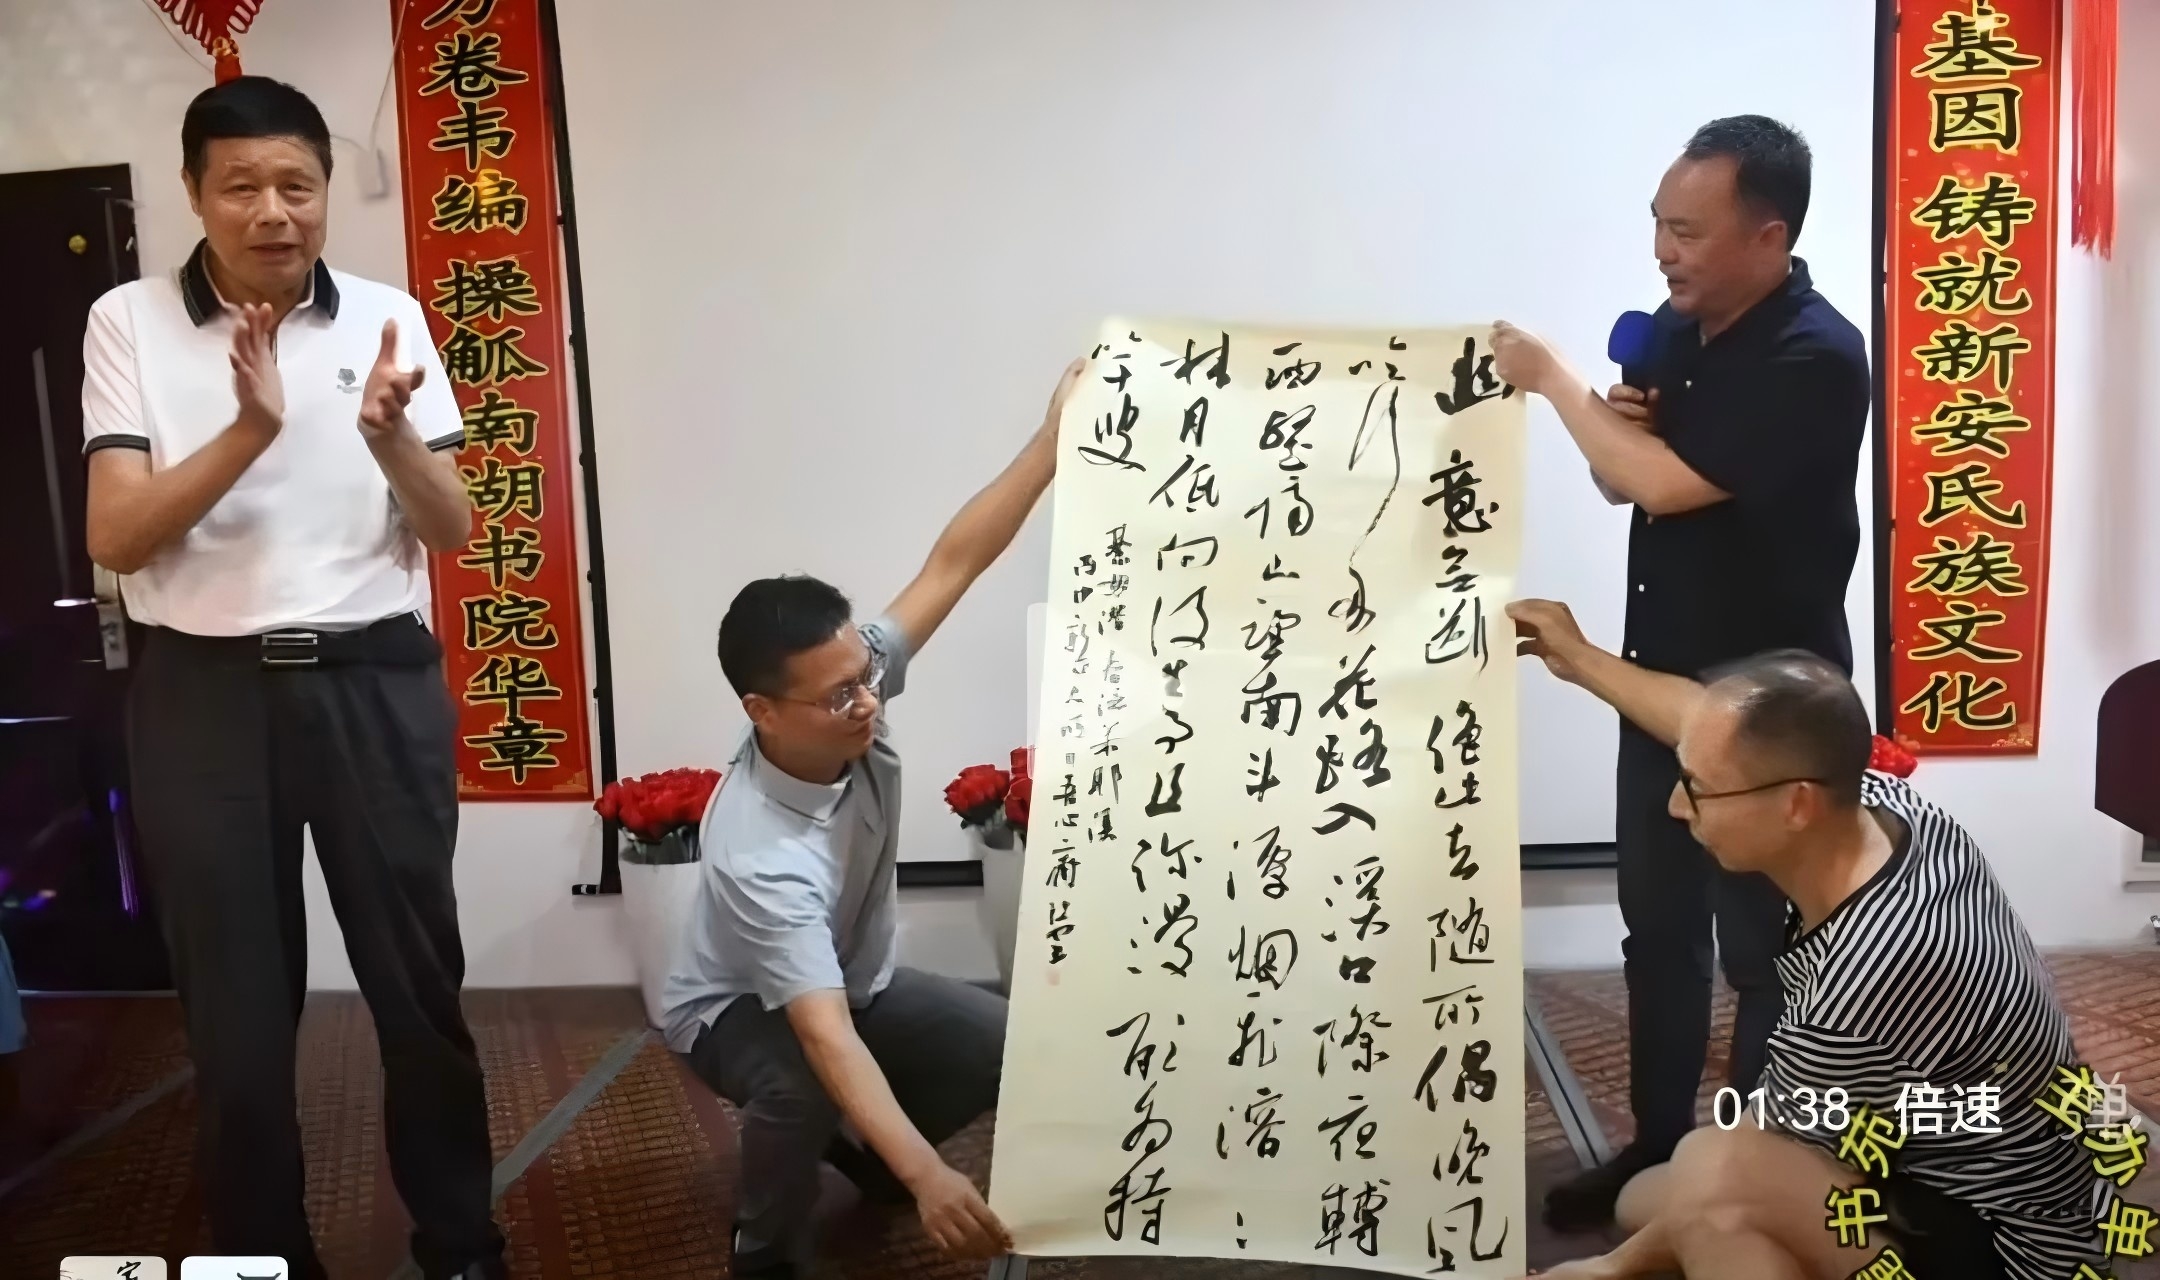 卷韦编 操觚南湖书院华章
基因 铸就新安氏族文化
幽意无断绝此去随所偶晚风
吹行舟花路入溪口際夜轉
西壑隔山望南斗潭烟飛溶〻
林月低向後生事且弥漫願为持
竿叟
綦毋潜春泛若耶溪
丙申
01:38 倍速
书苑